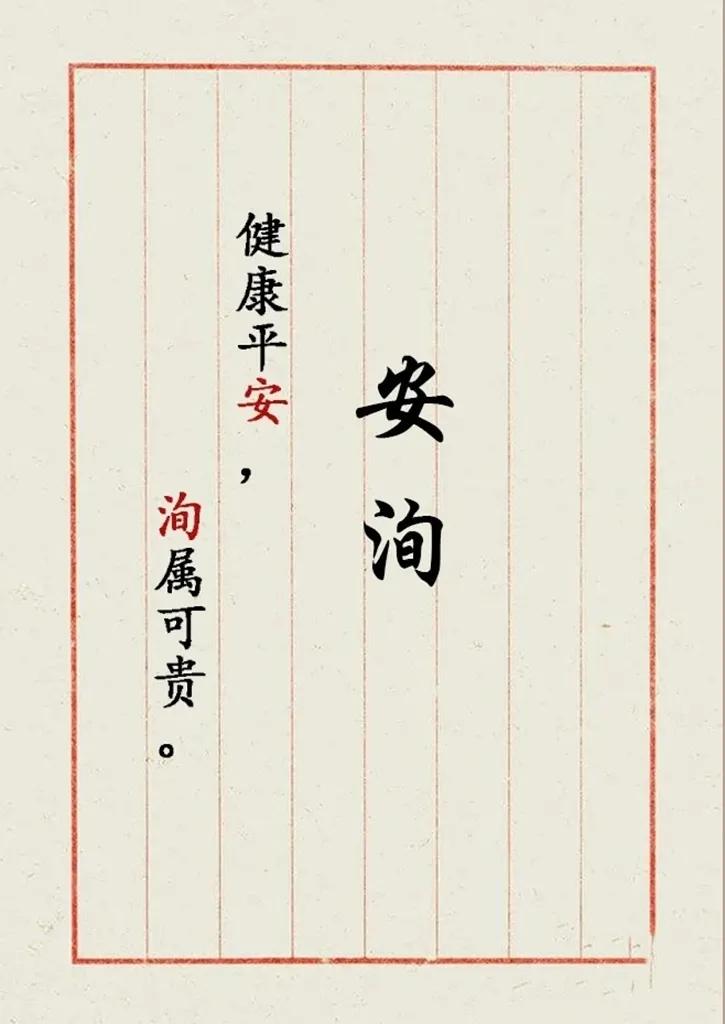 安洵
健康平安，
洵属可贵。